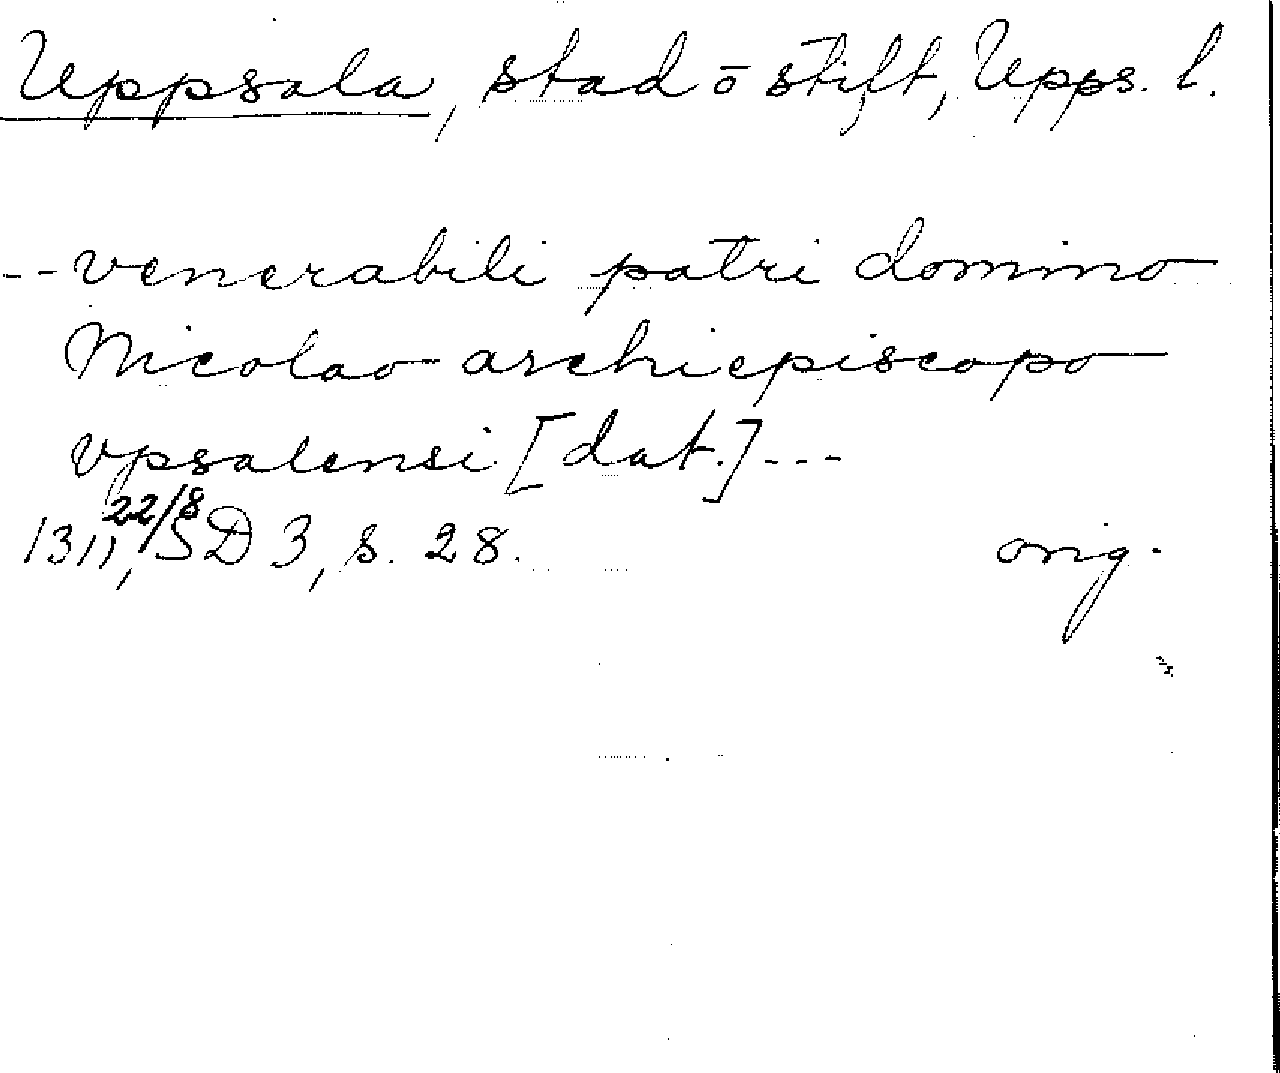 Uppsala, stad o stift, Upps. l.
-- venerabili patri domino
Nicolao archiepiscopo
vpsalensi [dat.] ---
1311, 22/8 SD 3, s. 28. orig.